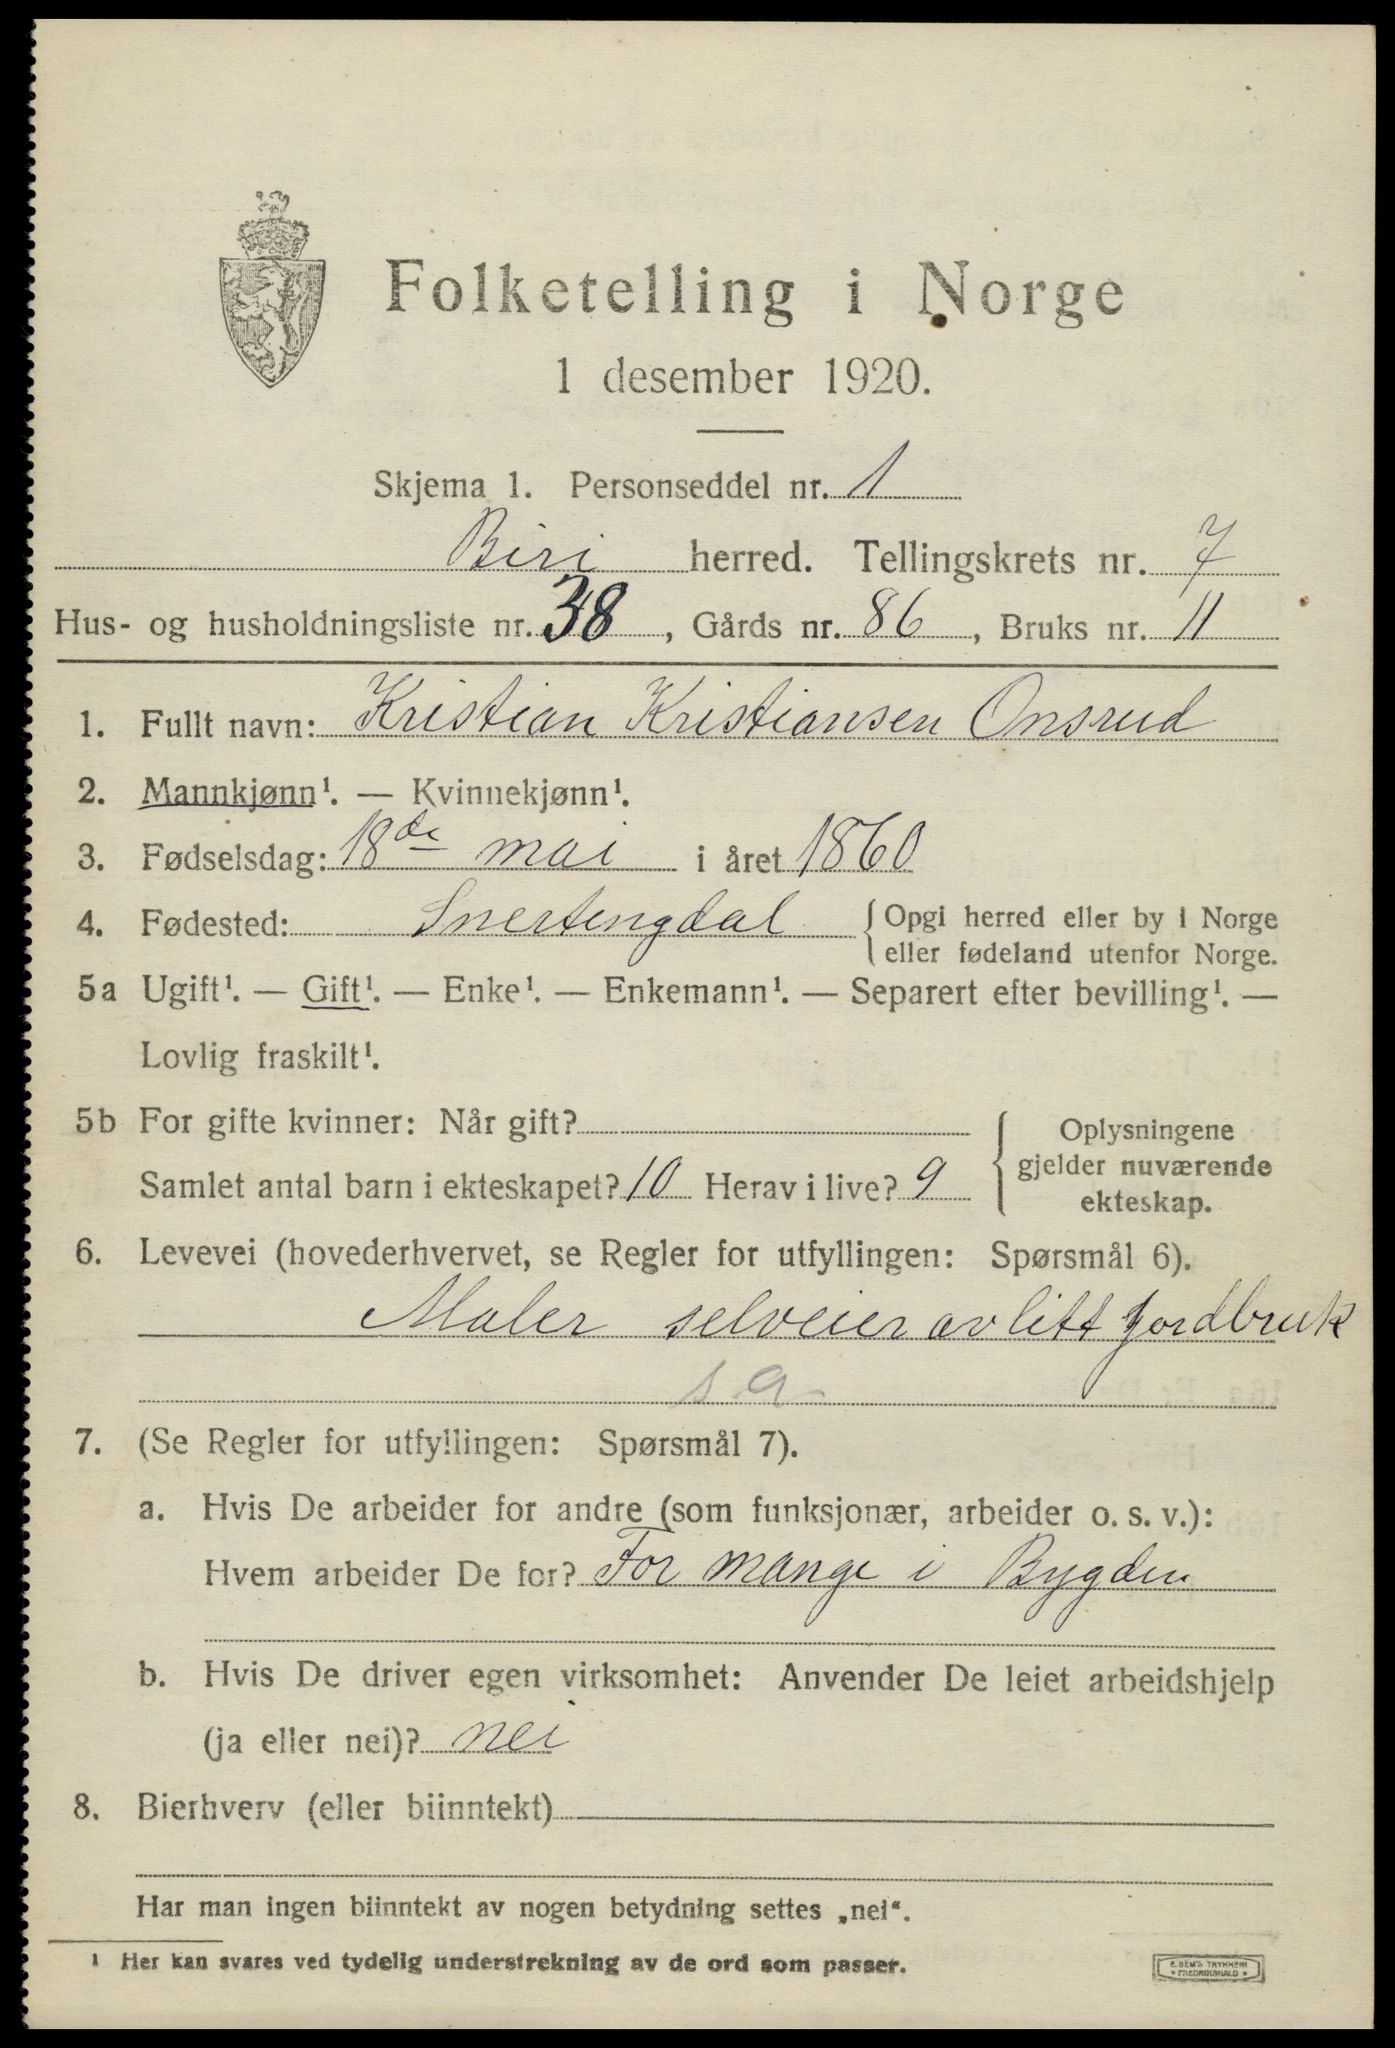 Folketelling i Norge
1 desember 1920.
Skjema 1. Personseddel nr. 1
Biri herred. Tellingskrets nr. 7
Hus- og husholdningsliste nr. 38, Gårds nr. 86, Bruks nr. 11
1. Fullt navn: Kristian Kristiansen Onsrud
2. Mannkjønn¹. — Kvinnekjønn¹.
3. Fødselsdag: 18de mai i året 1860
4. Fødested: Snertengdal { Opgi herred eller by i Norge
eller fødeland utenfor Norge.
5a Ugift¹. — Gift¹. — Enke¹. — Enkemann¹. — Separert efter bevilling¹. —
Lovlig fraskilt¹.
5b For gifte kvinner: Når gift?
Samlet antal barn i ekteskapet? 10 Herav i live? 9
Oplysningene
gjelder nuværende
ekteskap.
6. Levevei (hovederhvervet, se Regler for utfyllingen: Spørsmål 6).
Maler selveier av litt jordbruk
s a
7. (Se Regler for utfyllingen: Spørsmål 7).
a. Hvis De arbeider for andre (som funksjonær, arbeider o. s. v.):
Hvem arbeider De for? For mange i Bygden
b. Hvis De driver egen virksomhet: Anvender De leiet arbeidshjelp
(ja eller nei)? nei
8. Bierhverv (eller biinntekt)
Har man ingen biinntekt av nogen betydning settes „nei“.
¹ Her kan svares ved tydelig understrekning av de ord som passer.
E. SEM'S TRYKKERI
• FREDRIKSHALD •